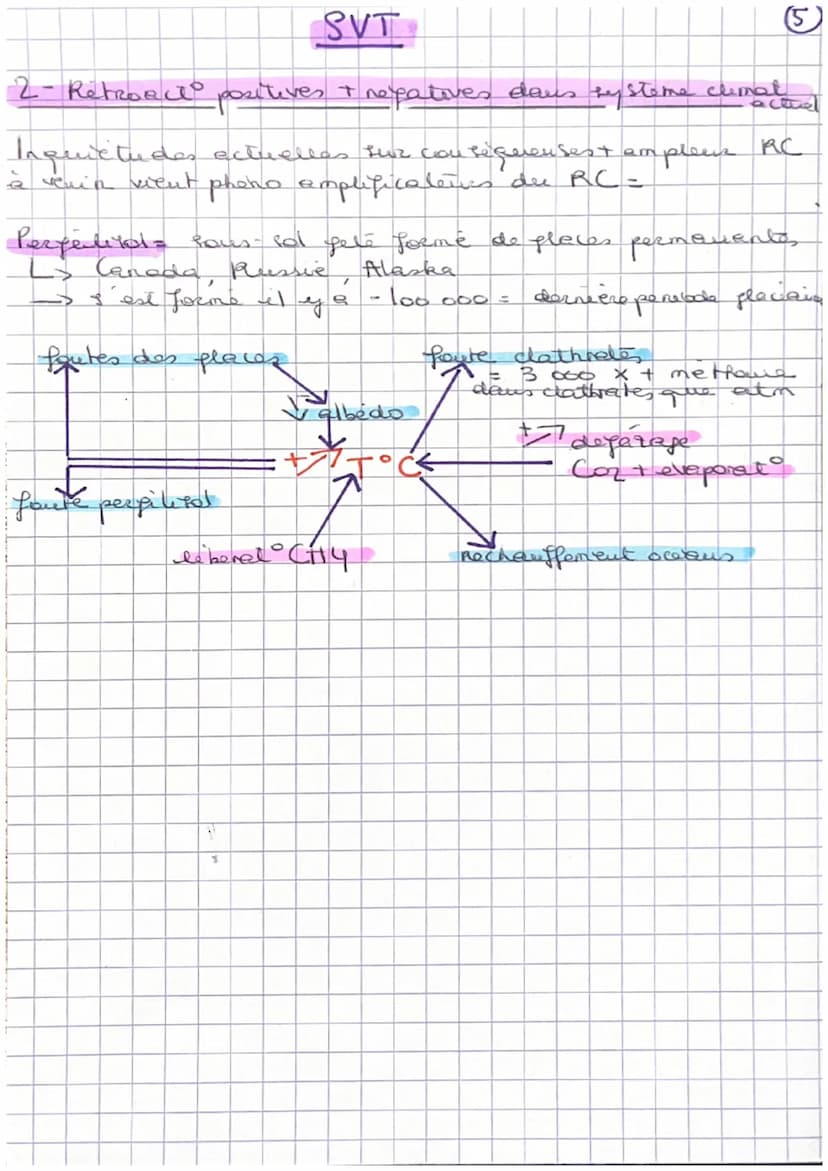 SVT
5
2- Rétroact° positives + négatives dans système climat
actuel
Inquiétudes actuelles sur conséquenses + ampleur RC
à venir vient phéno amplificateurs du RC =
Pergélisol = sous-sol gelé formé de glaces permanentes
↳ Canada, Russie, Alaska
→ s'est formé il y a - 100 000 = dernière période glaciaire
fontes des glaces
fonte clathrates
= 3 000 x + méthane
dans clathrates que atm
↓ albédo
+↗ dégazage
CO2 + évaporat°
+↗ T°C
fonte pergélisol
libérat° CH4
réchauffement océans